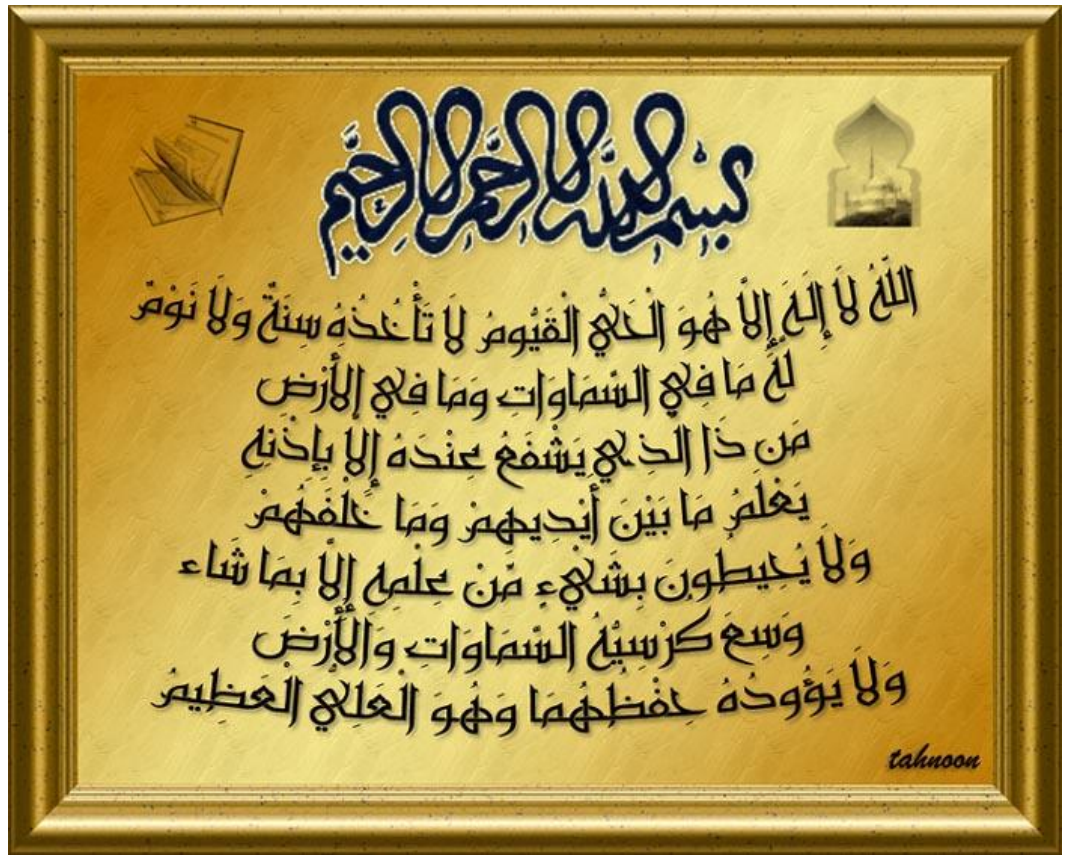 بسم الله الرحمن الرحيم
اللَّهُ لَا إِلَهَ إِلَّا هُوَ الْحَيُّ الْقَيُّومُ لَا تَأْخُذُهُ سِنَةٌ وَلَا نَوْمٌ
لَهُ مَا فِي السَّمَاوَاتِ وَمَا فِي الأَرْضِ
مَن ذَا الَّذِي يَشْفَعُ عِنْدَهُ إِلَّا بِإِذْنِهِ
يَعْلَمُ مَا بَيْنَ أَيْدِيهِمْ وَمَا خَلْفَهُمْ
وَلَا يُحِيطُونَ بِشَيْءٍ مِّنْ عِلْمِهِ إِلَّا بِمَا شَاء
وَسِعَ كُرْسِيُّهُ السَّمَاوَاتِ وَالْأَرْضَ
وَلَا يَؤُودُهُ حِفْظُهُمَا وَهُوَ الْعَلِيُّ الْعَظِيمُ
tahnoon